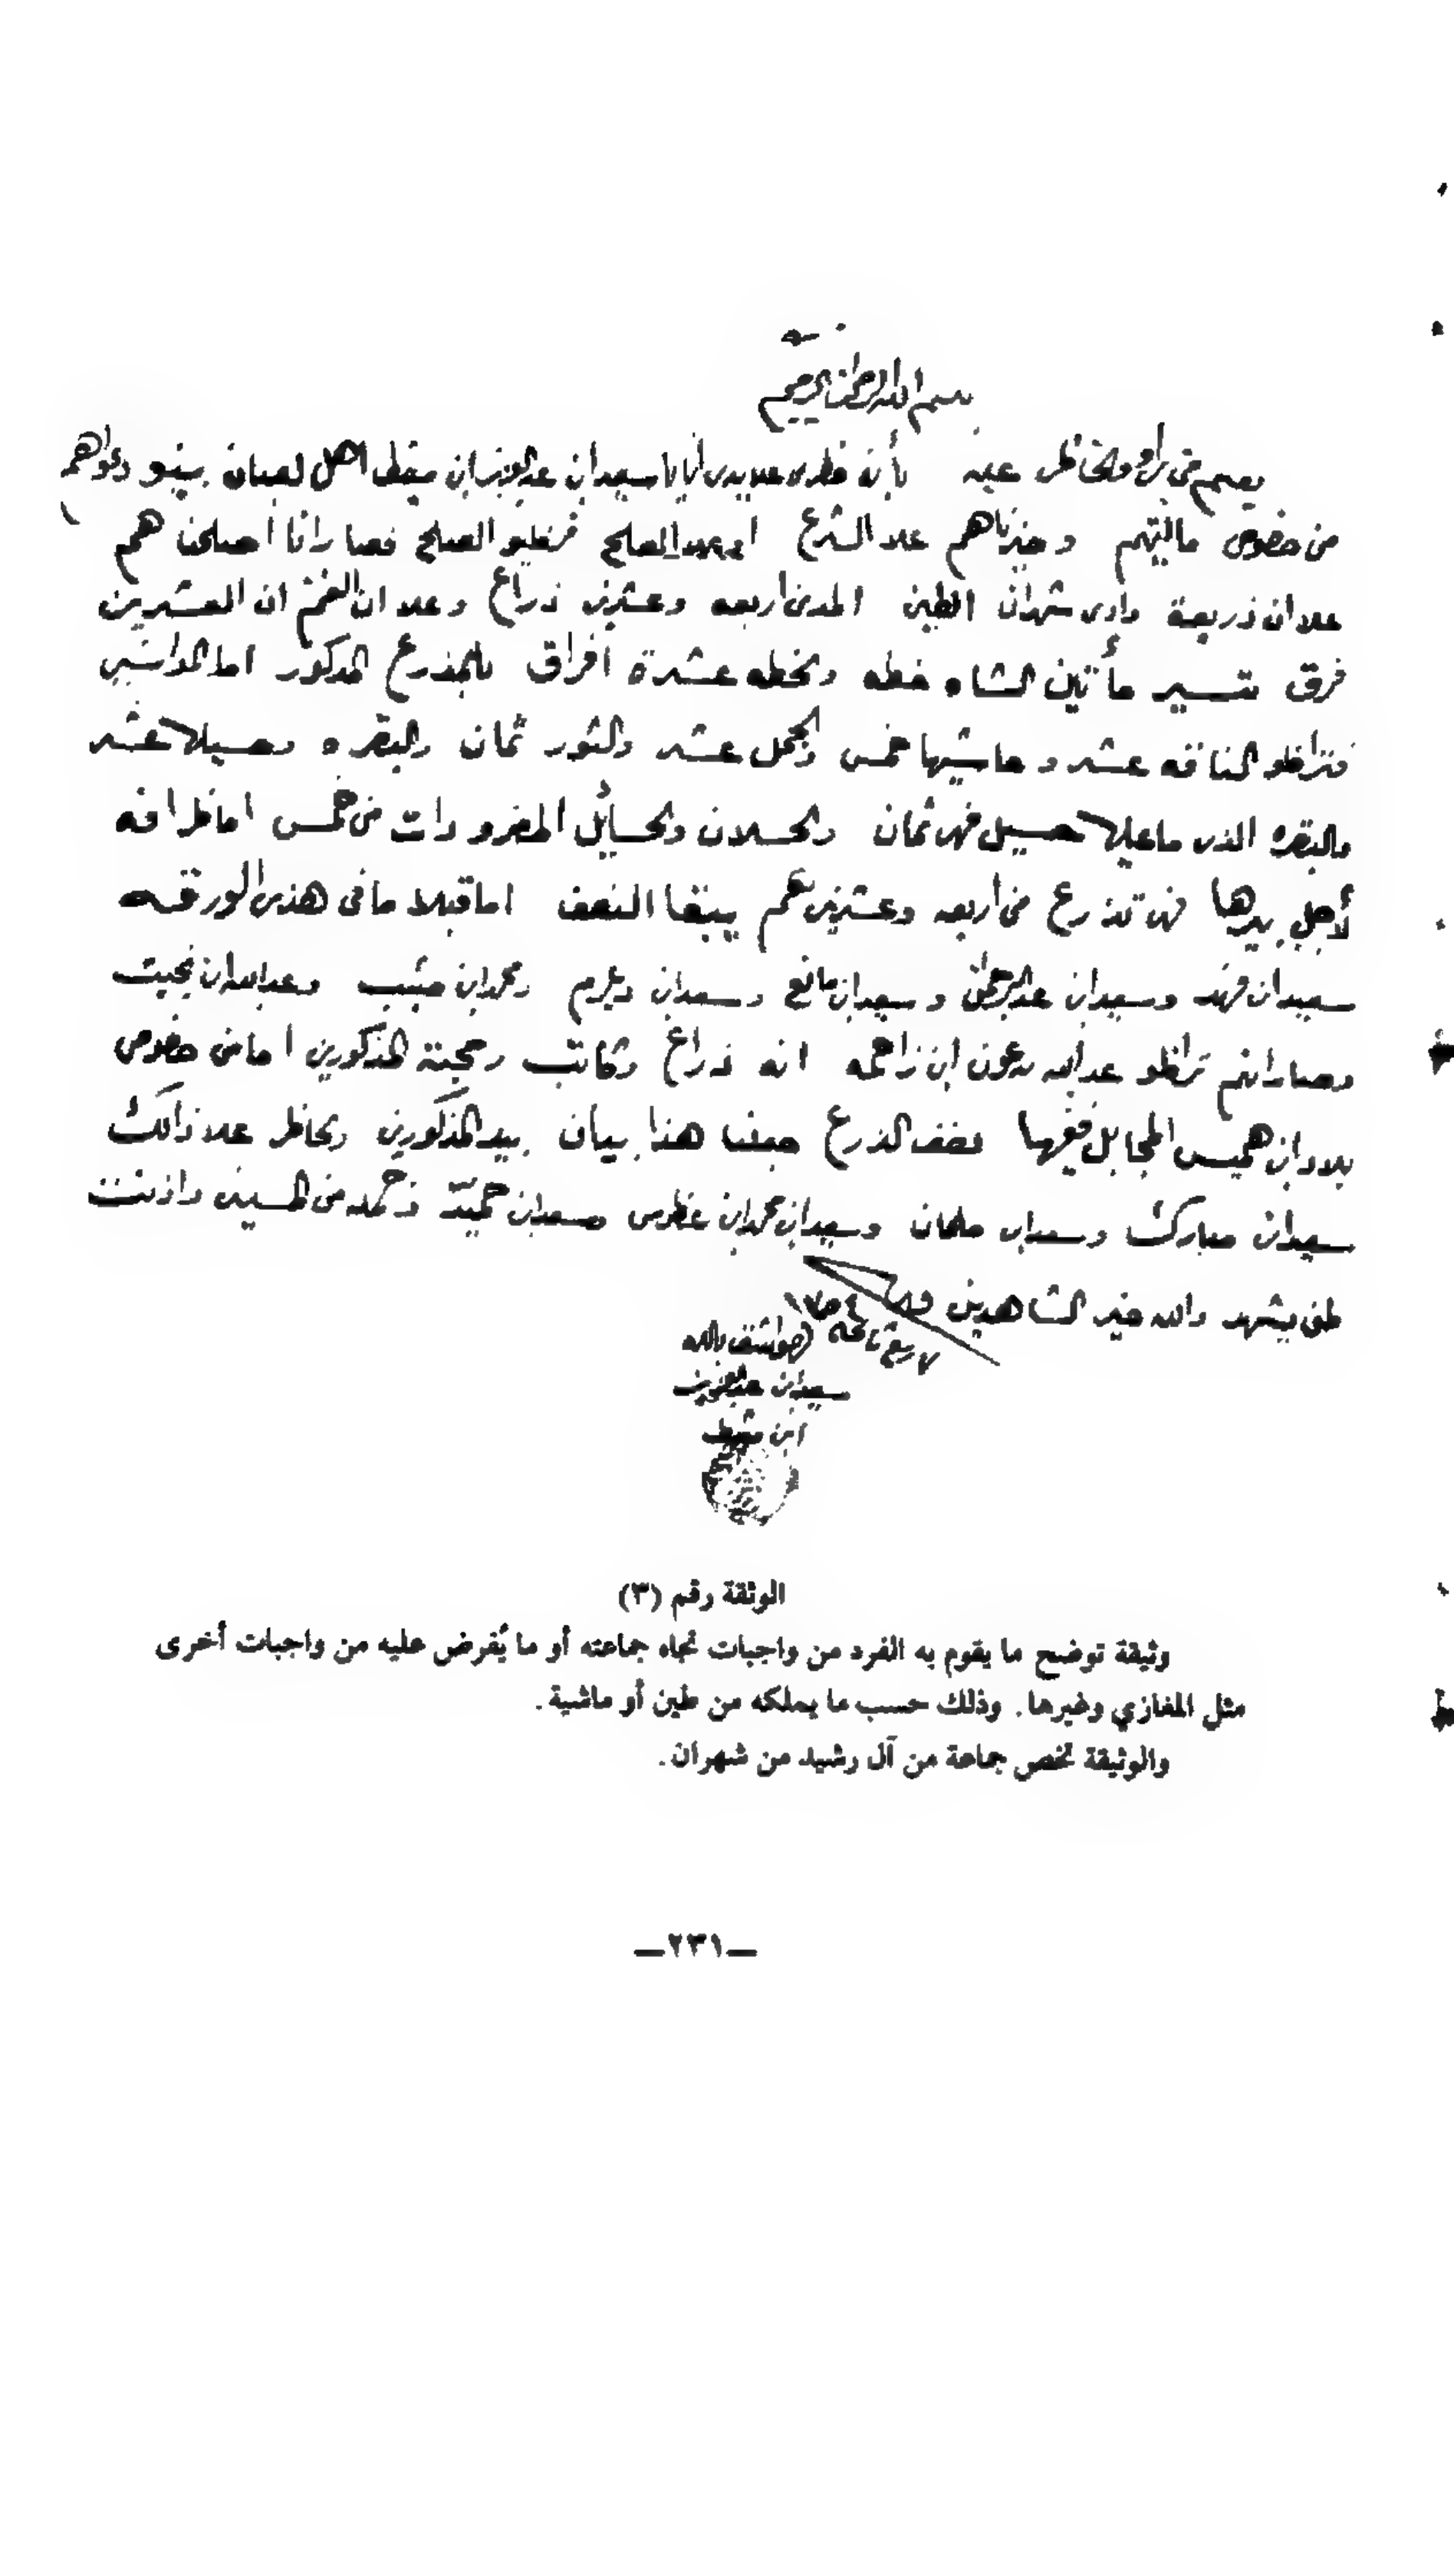 بسم الله الرحمن الرحيم
يعلم من يراه والحاظر عليه بأن حظرو علا يدي انا يا سعيد ابن عبدالعزيز ابن مشيط اهل لعبان بينو دعواهم
من خصوص ماليتهم وخيرناهم علا الشرع او علا الصلح فرغبو الصلح فصار انا اصلحنا هم
علا ان ذريعة وادي شهران الطين المدى اربعه وعشرين ذراع وعلا ان الغنم ان العشرين
فرق تسير مأتين الشاه خطه والخطه عشرة افراق للمذرع المذكور اما المواشي
فتراظو الناقه عشر وحاشيها خمس والجمل عشر والثور ثمان والبقره وحسيلها عشر
والبقره الذي ما عليها حسيل فهي ثمان والحسلان والحسايل المفرودات من خمس اما ظرافه
لأجل بيرها فهي تذرع من اربعه وعشرين ينقا النصف اما قبلا ما في هذي الورقه
سعيد ابن فهد وسعيد ابن عبدالرحمن وسعيد ابن مانع وسعد ابن ومحمد ابن وعبدالله ابن بخيت
وصار انهم تراظو عبدالله بن عون ابن زاحمه انه ذراع وكاتب رحجبة المذكورين اما من خصوص
بلاد ابن هميس المجابل ففيها نصف الذرع جعلنا هذا بيان بيد المذكورين والحاظر علا ذالك
سعيد ابن مبارك وسعد ابن ملحان وسعيد ابن محمد ابن وسعد ابن حميد وحمد من الحسين واذنت
لمن يشهد والله خير الشاهدين
٧ ربيع تالي ١٣٥٤ الواثق بالله
سعيد ابن عبدالعزيز
ابن مشيط
الوثيقة رقم (٣)
وثيقة توضح ما يقوم به الفرد من واجبات تجاه جماعته أو ما يُفرض عليه من واجبات أخرى
مثل المغازي وغيرها. وذلك حسب ما يملكه من طين أو ماشية.
والوثيقة تخص جماعة من آل رشيد من شهران.
—٢٣١—